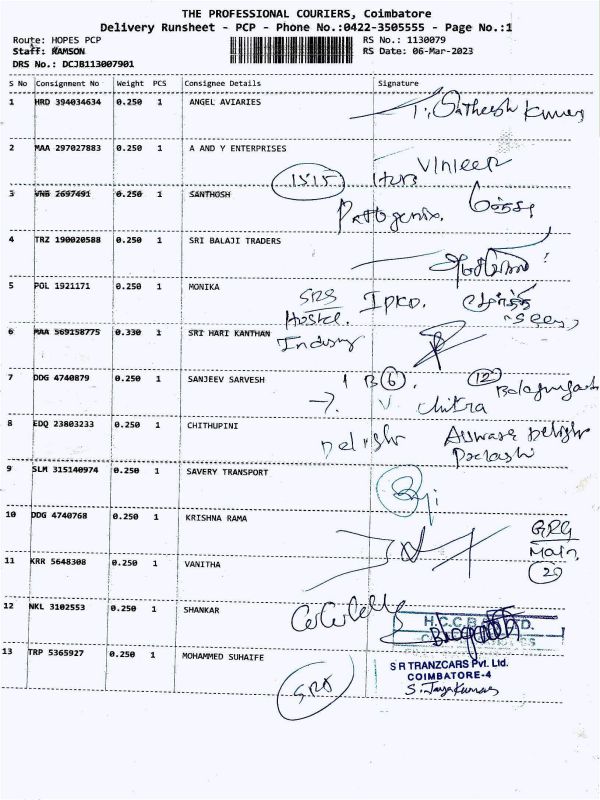 THE PROFESSIONAL COURIERS, Coimbatore
Delivery Runsheet - PCP - Phone No.:0422-3505555 - Page No.:1
Route: HOPES PCP RS No.: 1130079
Staff: RAMSON RS Date: 06-Mar-2023
DRS No.: DCJB113007901
S No Consignment No Weight PCS Consignee Details Signature
1 HRD 394034634 0.250 1 ANGEL AVIARIES T. Satheesh Kumar
2 MAA 297027883 0.250 1 A AND Y ENTERPRISES
1515
3 VNB 2697491 0.250 1 SANTHOSH
Pathogenix.
4 TRZ 190020588 0.250 1 SRI BALAJI TRADERS
5 POL 1921171 0.250 1 MONIKA
SRS
Hostel.
6 MAA 569158775 0.330 1 SRI HARI KANTHAN
7 DDG 4740879 0.250 1 SANJEEV SARVESH 1 B 6 12
V Chitra
8 EDQ 23803233 0.250 1 CHITHUPINI
Delight
9 SLM 315140974 0.250 1 SAVERY TRANSPORT
10 DDG 4740768 0.250 1 KRISHNA RAMA
GRG
Main
20
11 KRR 5648308 0.250 1 VANITHA
12 NKL 3102553 0.250 1 SHANKAR
13 TRP 5365927 0.250 1 MOHAMMED SUHAIFE
S R TRANZCARS Pvt. Ltd.
COIMBATORE-4
S. Jayakumar